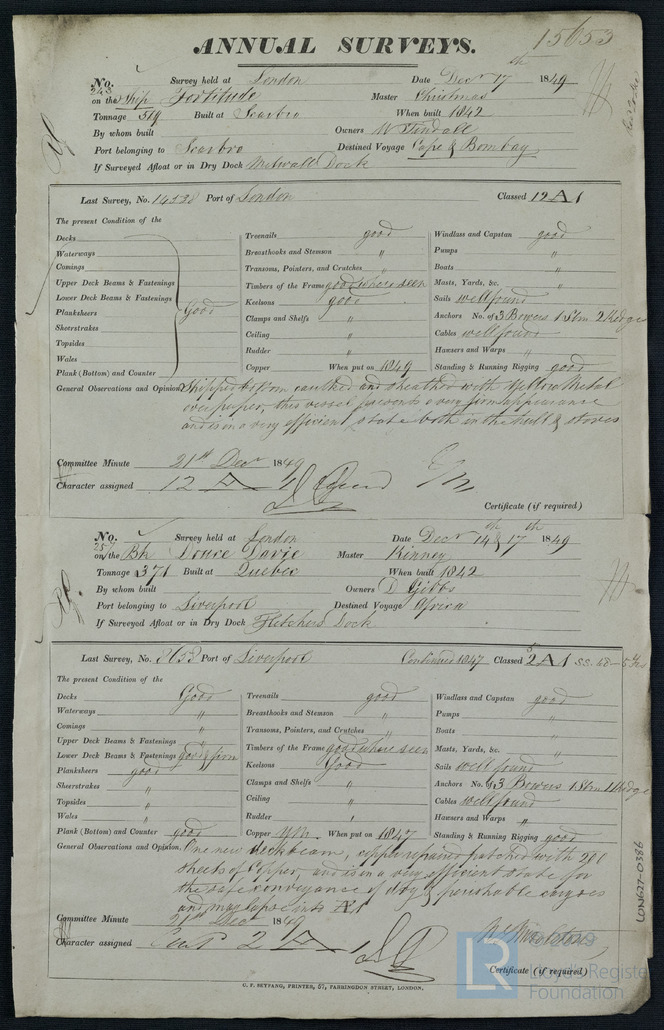 15653
ANNUAL SURVEYS.
No. 248 Survey held at London Date Decr 17th 1849
on the Ship Fortitude Master Christmas
Tonnage 519 Built at Scarbro When built 1842
By whom built Owners W Tindall
Port belonging to Scarbro Destined Voyage Cape & Bombay
If Surveyed Afloat or in Dry Dock Dock
Last Survey, No. Port of London Classed 12 A 1
The present Condition of the
Decks
Waterways
Comings
Upper Deck Beams & Fastenings
Lower Deck Beams & Fastenings
Planksheers
Sheerstrakes
Topsides
Wales
Plank (Bottom) and Counter
Good
Treenails good
Breasthooks and Stemson "
Transoms, Pointers, and Crutches "
Timbers of the Frame good where seen
Keelsons good
Clamps and Shelfs "
Ceiling "
Rudder "
Copper When put on 1849
Windlass and Capstan good
Pumps "
Boats "
Masts, Yards, &c. "
Sails well found
Anchors No. of 3 Bowers 1 Strm 2 Kedges
Cables well found
Hawsers and Warps "
Standing & Running Rigging good
General Observations and Opinion Stripped bottom caulked and sheathed with Yellow Metal
over paper, this vessel presents a very firm appearance
and is in a very efficient state both in the hull & stores
Committee Minute 21st Decr 1849
Character assigned 12 A 1
Certificate (if required)
No. 257 Survey held at London Date Decr 14th & 17th 1849
on the Bk Douce Davie Master Kenney
Tonnage 371 Built at Quebec When built 1842
By whom built Owners D Gibbs
Port belonging to Liverpool Destined Voyage Africa
If Surveyed Afloat or in Dry Dock Fletchers Dock
Last Survey, No. Port of Liverpool Continued 1847 Classed 2 A 1 SS. 48-5 Yrs
The present Condition of the
Decks Good
Waterways "
Comings "
Upper Deck Beams & Fastenings "
Lower Deck Beams & Fastenings good & firm
Planksheers good
Sheerstrakes "
Topsides "
Wales "
Plank (Bottom) and Counter good
Treenails good
Breasthooks and Stemson "
Transoms, Pointers, and Crutches "
Timbers of the Frame good where seen
Keelsons Good
Clamps and Shelfs "
Ceiling "
Rudder "
Copper YM When put on 1847
Windlass and Capstan good
Pumps "
Boats "
Masts, Yards, &c. "
Sails well found
Anchors No. of 3 Bowers 1 Strm 1 Kedge
Cables well found
Hawsers and Warps "
Standing & Running Rigging good
General Observations and Opinion. One new deck beam, copper repaired patched with 200
sheets of Copper, and is in a very efficient state for
the safe conveyance of dry & perishable cargoes
and may lapse into Æ 1
Committee Minute 21st Decr 1849
Character assigned Cont 2 A 1
Certificate (if required)
C. F. SEYFANG, PRINTER, 57, FARRINGDON STREET, LONDON.
LON627-0386
LR
Lloyd's Register
Foundation